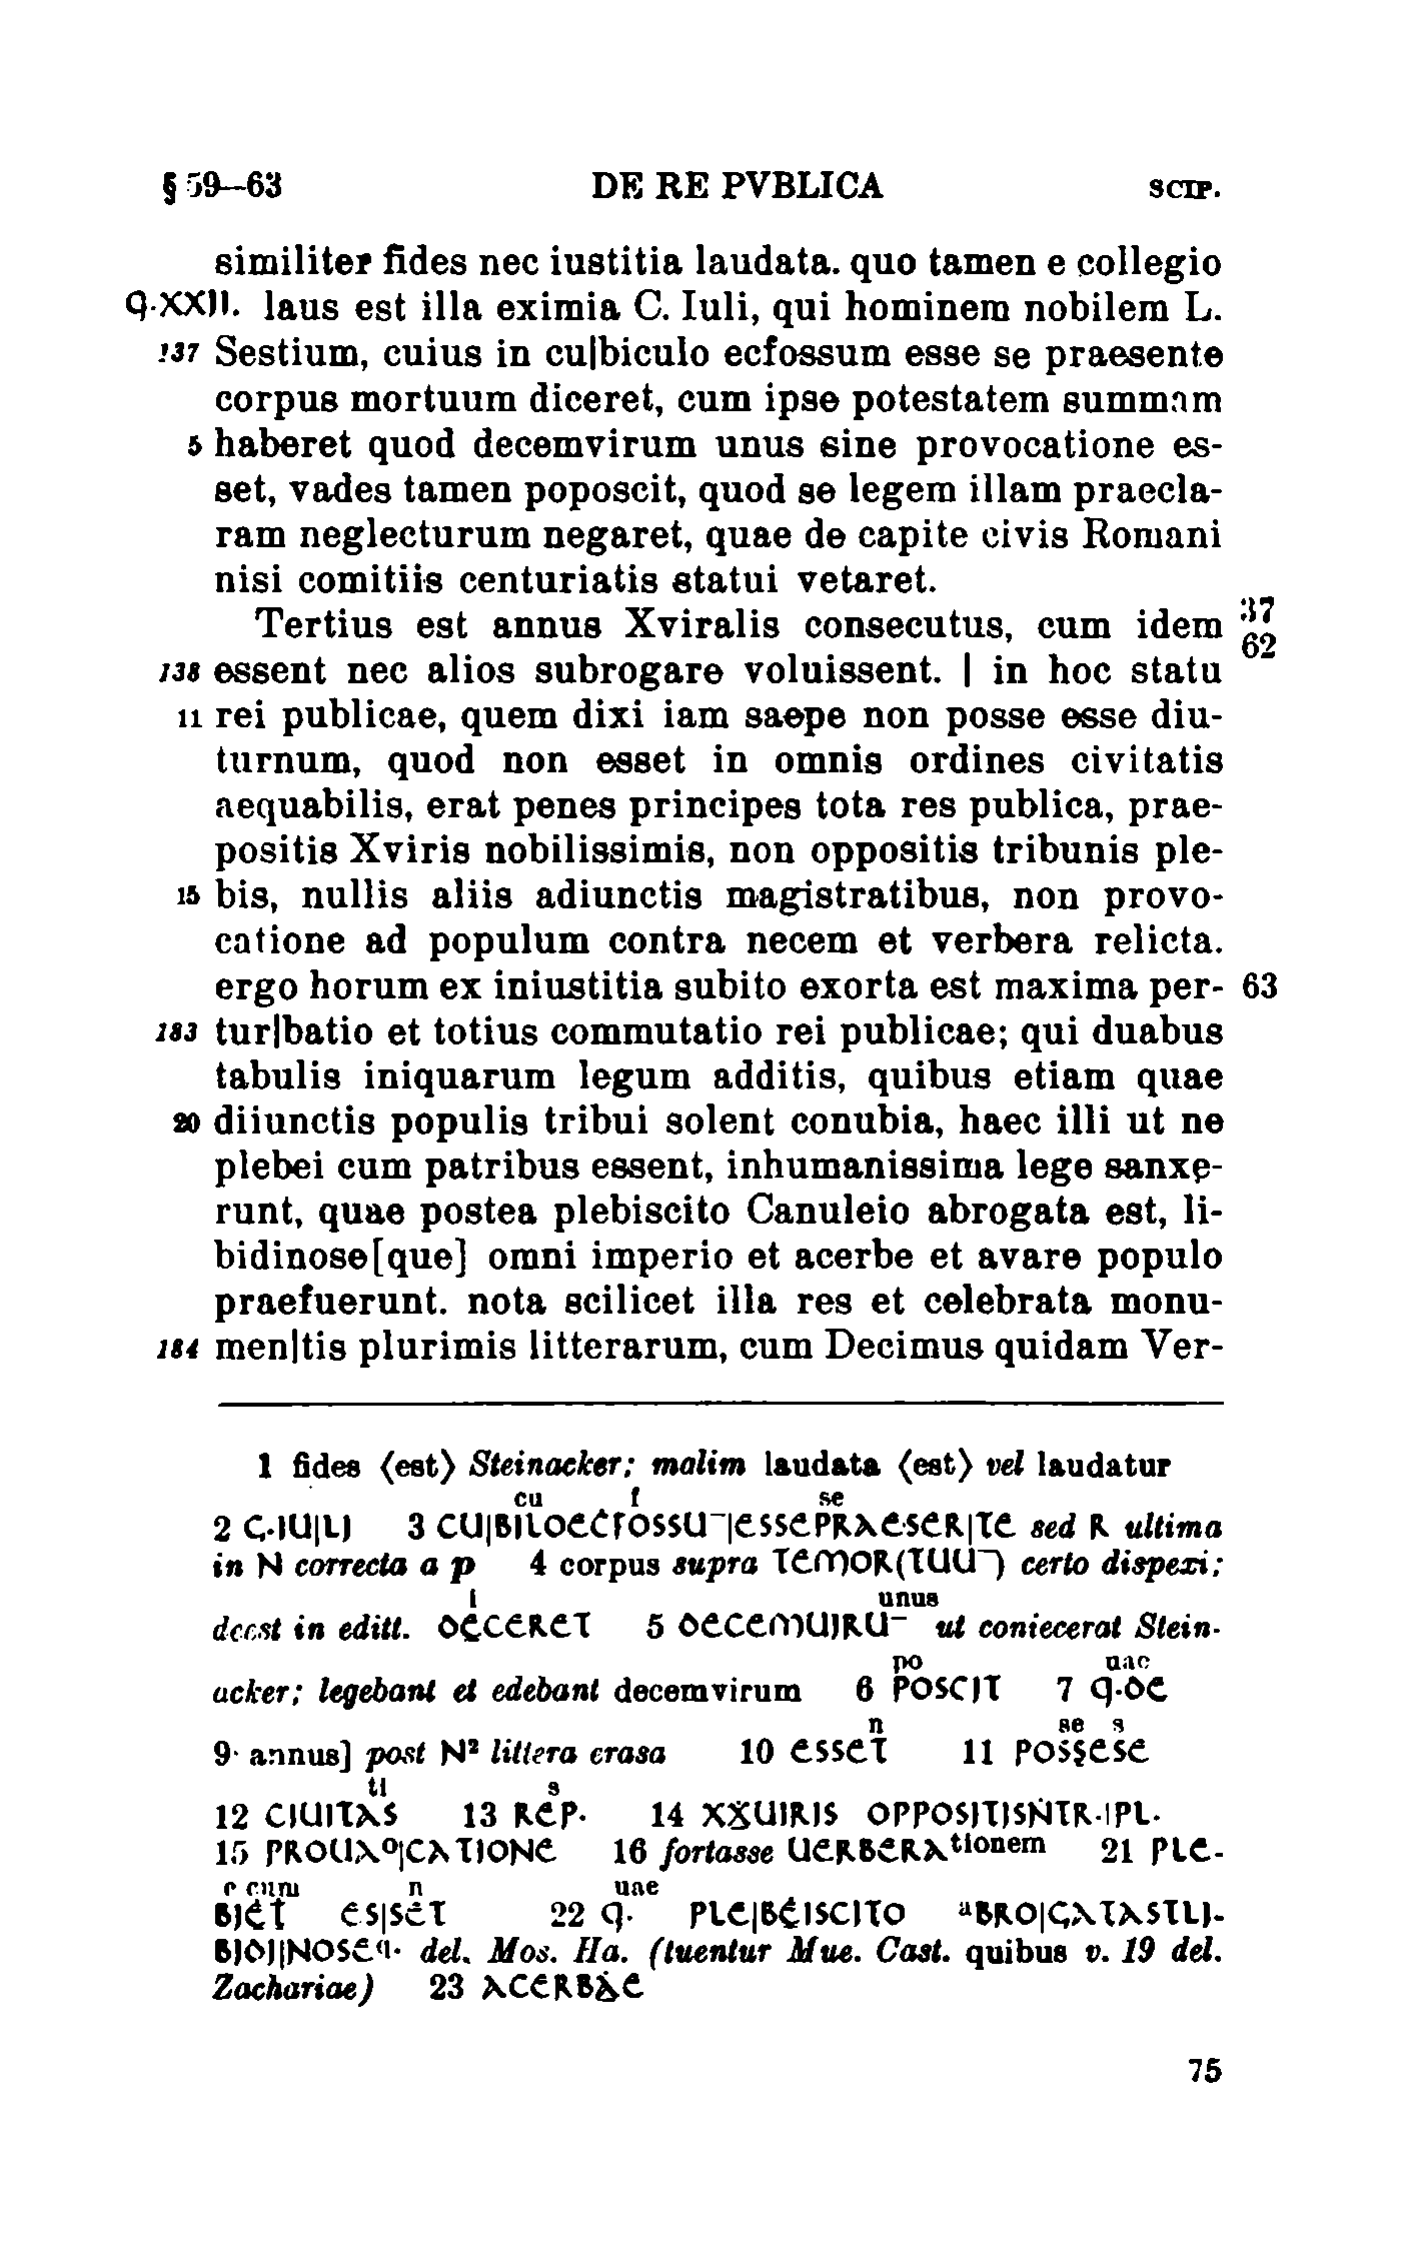 § 59—63 DE RE PVBLICA SCIP.
similiter fides nec iustitia laudata. quo tamen e collegio
q·XXII. laus est illa eximia C. Iuli, qui hominem nobilem L.
137 Sestium, cuius in cu|biculo ecfossum esse se praesente
corpus mortuum diceret, cum ipse potestatem summam
5 haberet quod decemvirum unus sine provocatione es-
set, vades tamen poposcit, quod se legem illam praecla-
ram neglecturum negaret, quae de capite civis Romani
nisi comitiis centuriatis statui vetaret.
Tertius est annus Xviralis consecutus, cum idem 37 62
138 essent nec alios subrogare voluissent. | in hoc statu
11 rei publicae, quem dixi iam saepe non posse esse diu-
turnum, quod non esset in omnis ordines civitatis
aequabilis, erat penes principes tota res publica, prae-
positis Xviris nobilissimis, non oppositis tribunis ple-
15 bis, nullis aliis adiunctis magistratibus, non provo-
catione ad populum contra necem et verbera relicta.
ergo horum ex iniustitia subito exorta est maxima per- 63
183 tur|batio et totius commutatio rei publicae; qui duabus
tabulis iniquarum legum additis, quibus etiam quae
20 diiunctis populis tribui solent conubia, haec illi ut ne
plebei cum patribus essent, inhumanissima lege sanxe-
runt, quae postea plebiscito Canuleio abrogata est, li-
bidinose[que] omni imperio et acerbe et avare populo
praefuerunt. nota scilicet illa res et celebrata monu-
184 men|tis plurimis litterarum, cum Decimus quidam Ver-
1 fides ⟨est⟩ Steinacker; malim laudata ⟨est⟩ vel laudatur
cu f se
2 C·IU|LI 3 CU|BILOECFOSSU¯|ESSEPRAESER|TE sed R ultima
in N correcta a p 4 corpus supra TEMOR(TUU¯) certo dispexi;
i unus
deest in editt. DECERET 5 DECEMUIRU¯ ut coniecerat Stein-
po uae
acker; legebant et edebant decemvirum 6 POSCIT 7 q·DE
n se s
9 annus] post N² littera erasa 10 ESSET 11 POSSESE
ti s
12 CIUITAS 13 REP· 14 XXUIRIS OPPOSITISNTR·IPL·
15 PROUAº|CATIONE 16 fortasse UERBERAtionem 21 PLE-
e cum n uae
BIET ES|SET 22 q· PLE|BEISCITO aBRO|GATASTLI-
BIDI|NOSEq· del. Mos. Ha. (tuentur Mue. Cast. quibus v. 19 del.
Zachariae) 23 ACERBAE
75